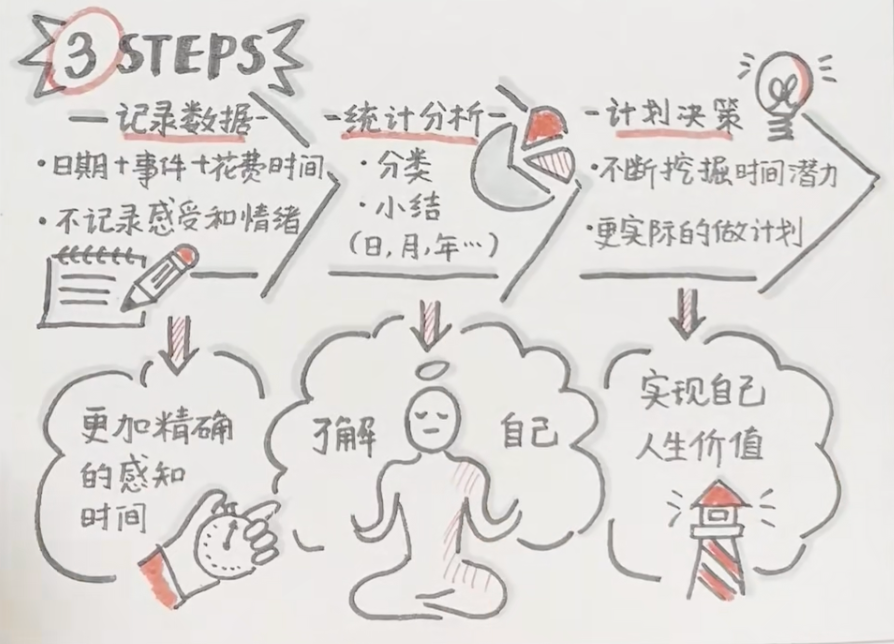 3 STEPS
记录数据
·日期+事件+花费时间
·不记录感受和情绪
统计分析
·分类
·小结
(日,月,年…)
计划决策
·不断挖掘时间潜力
·更实际的做计划
更加精确
的感知
时间
了解 自己
实现自己
人生价值